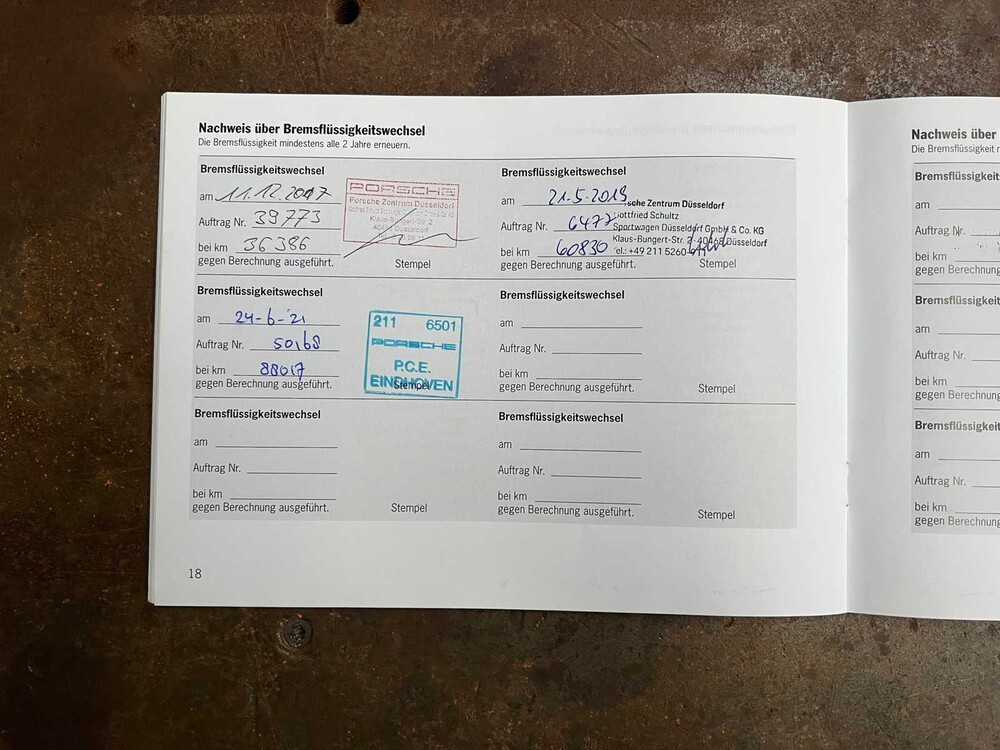 Nachweis über Bremsflüssigkeitswechsel
Die Bremsflüssigkeit mindestens alle 2 Jahre erneuern.
Bremsflüssigkeitswechsel
am 11.12.2017
Auftrag Nr. 39773
bei km 36386
gegen Berechnung ausgeführt.
Stempel
PORSCHE
Porsche Zentrum Düsseldorf
Klaus-Bungert-Str. 2
Düsseldorf
Bremsflüssigkeitswechsel
am 21.5.2019
Auftrag Nr. 6477
bei km 60830
gegen Berechnung ausgeführt.
Stempel
sche Zentrum Düsseldorf
Gottfried Schultz
Sportwagen Düsseldorf GmbH & Co. KG
Klaus-Bungert-Str. 2 · 40468 Düsseldorf
Tel.: +49 211 5260
Bremsflüssigkeitswechsel
am 24-6-'21
Auftrag Nr. 50168
bei km 88017
gegen Berechnung ausgeführt.
Stempel
211 6501
PORSCHE
P.C.E.
EINDHOVEN
Bremsflüssigkeitswechsel
am
Auftrag Nr.
bei km
gegen Berechnung ausgeführt.
Stempel
Bremsflüssigkeitswechsel
am
Auftrag Nr.
bei km
gegen Berechnung ausgeführt.
Stempel
Bremsflüssigkeitswechsel
am
Auftrag Nr.
bei km
gegen Berechnung ausgeführt.
Stempel
18
Nachweis über
Die Bremsflüssigkeit
Bremsflüssigkeit
am
Auftrag Nr.
bei km
gegen Berechnung
Bremsflüssigkeit
am
Auftrag Nr.
bei km
gegen Berechnung
Bremsflüssigkeit
am
Auftrag Nr.
bei km
gegen Berechnung